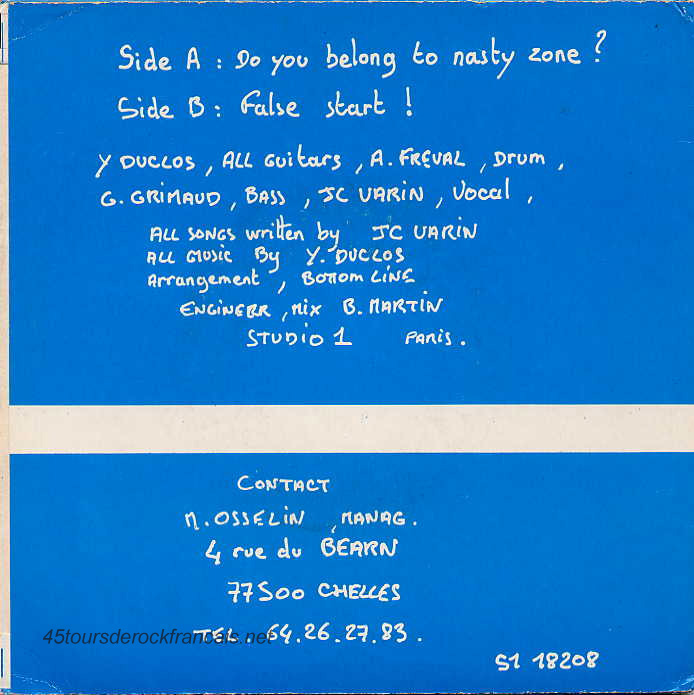 Side A : Do you belong to nasty zone ?
Side B : False start !
Y DUCLOS , ALL Guitars , A. FREVAL , Drum ,
G. GRIMAUD , BASS , JC VARIN , Vocal ,
ALL SONGS written by JC VARIN
ALL MUSIC By Y. DUCLOS
Arrangement , BOTTOM LINE
ENGINEER , MIX B. MARTIN
STUDIO 1 PARIS .
CONTACT
M. OSSELIN , MANAG .
4 rue du BEARN
77500 CHELLES
TEL . 64.26.27.83 .
45toursderockfrancais.net
S1 18208